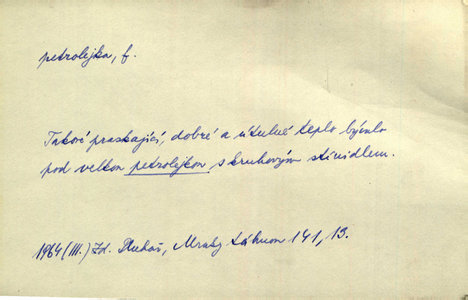 petrolejka, f.
Takové praskající, dobré a útulné teplo bývalo
pod velkou petrolejkou s kruhovým stínidlem.
1964 (III.) Zd. Pluhař, Mraky táhnou 141, 13.